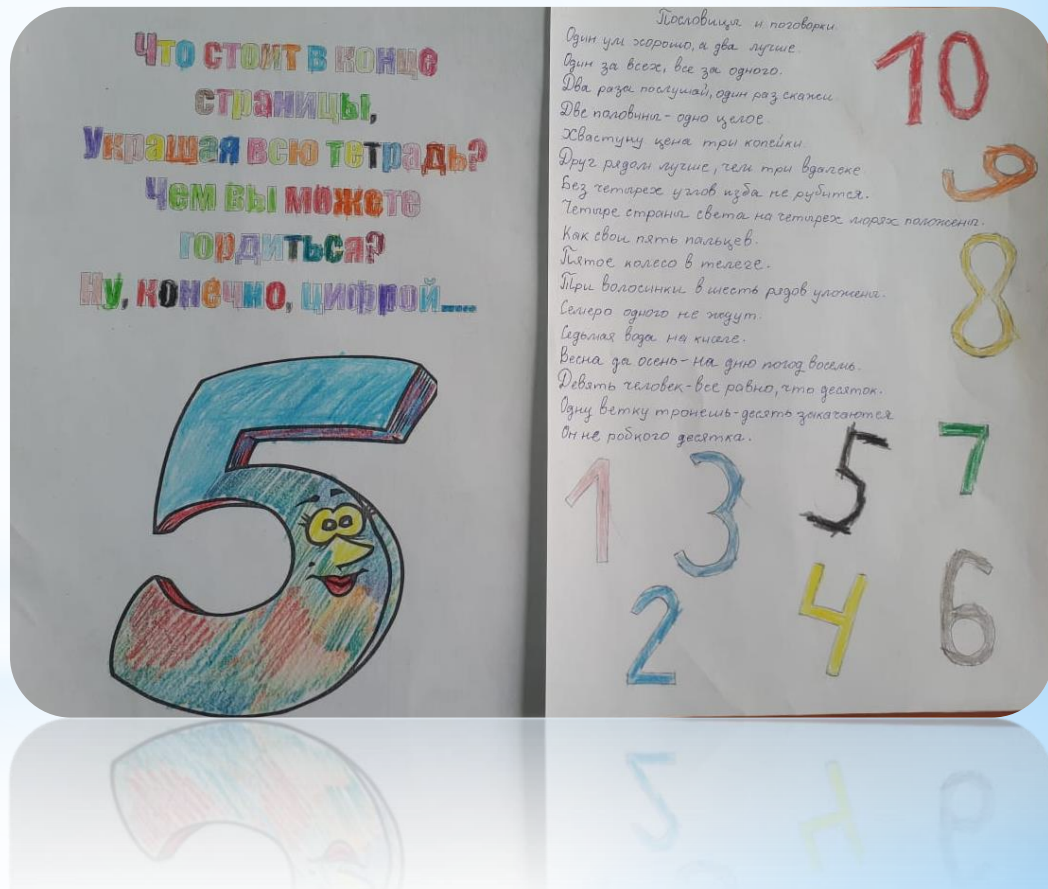 Что стоит в конце
страницы,
Украшая всю тетрадь?
Чем вы можете
гордиться?
Ну, конечно, цифрой....
5
Пословицы и поговорки.
Один ум хорошо, а два лучше.
Один за всех, все за одного.
Два раза послушай, один раз скажи.
Две половины - одно целое.
Хвастуну цена три копейки.
Друг рядом лучше, чем три вдалеке
Без четырех углов изба не рубится.
Четыре страны света на четырех морях положены.
Как свои пять пальцев.
Пятое колесо в телеге.
Три волосинки в шесть рядов уложены.
Семеро одного не ждут.
Седьмая вода на киселе.
Весна да осень - на дню погод восемь.
Девять человек - все равно, что десяток.
Одну ветку тронешь - десять закачаются
Он не робкого десятка.
10
9
8
7
5
3
1
2
4
6